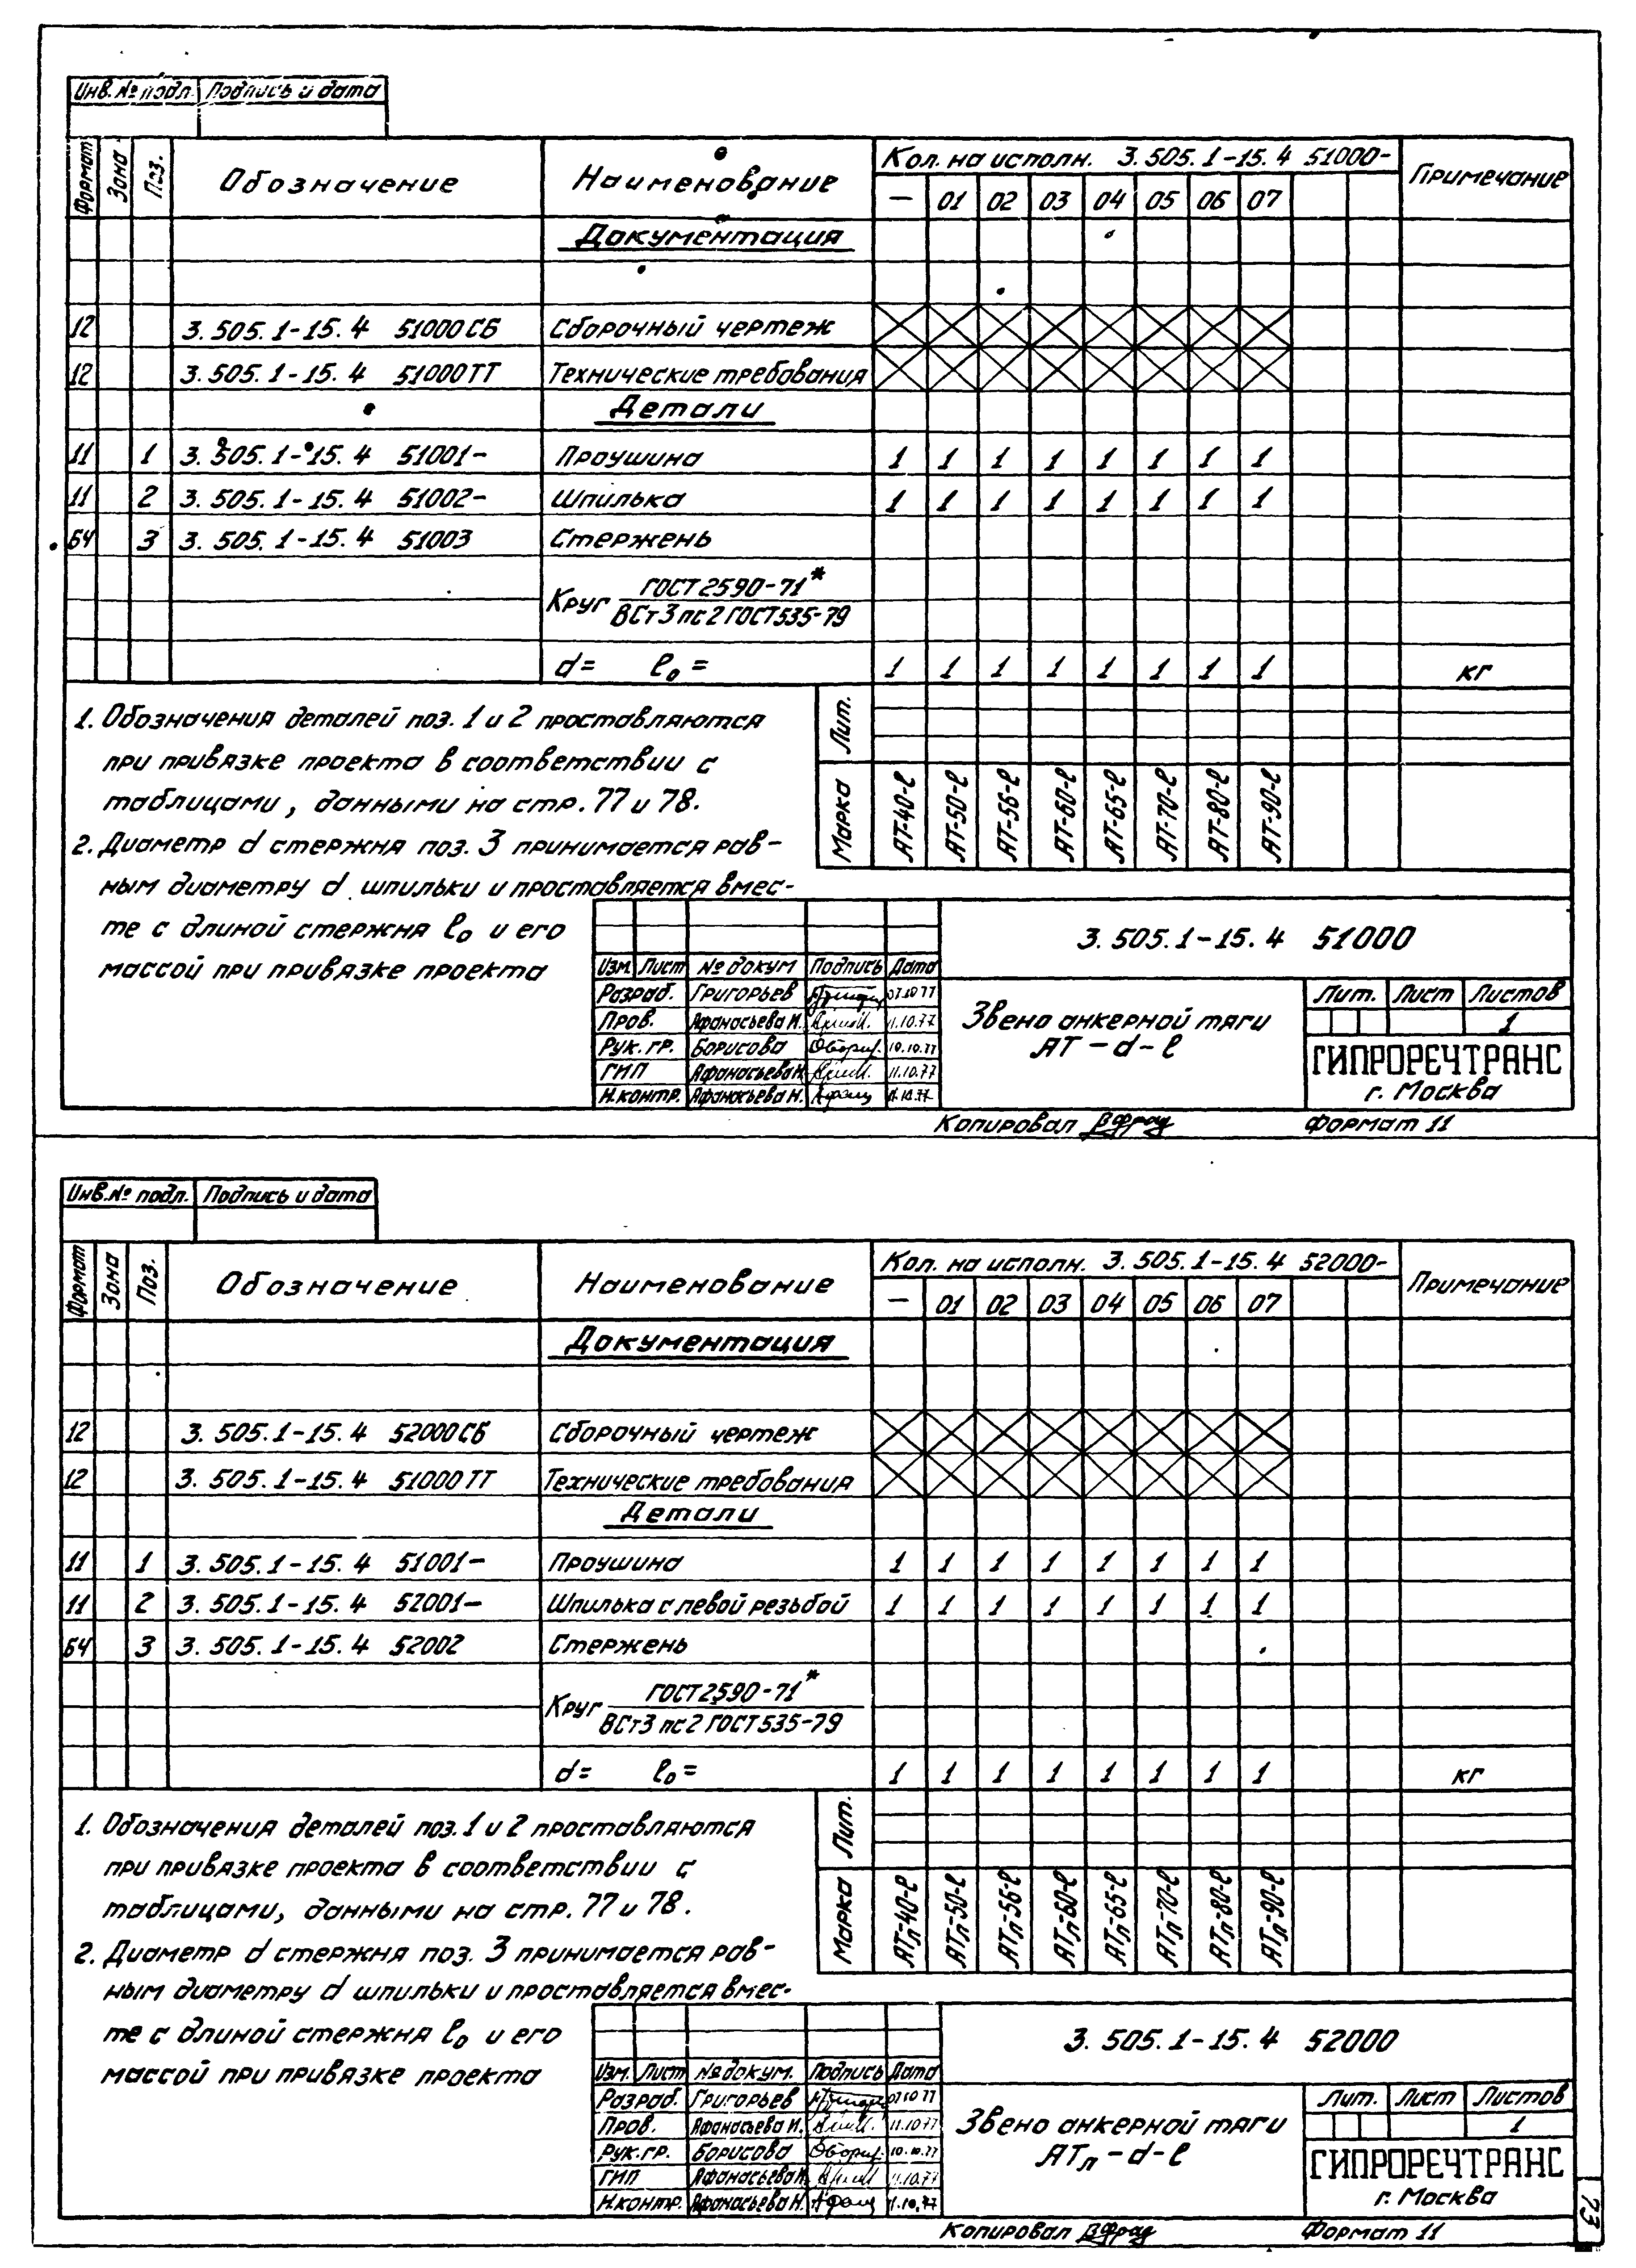 Инв. № подл. Подпись и дата
Формат Зона Поз. Обозначение Наименование Кол. на исполн. 3.505.1-15.4 51000- Примечание
— 01 02 03 04 05 06 07
Документация
12 3.505.1-15.4 51000СБ Сборочный чертеж
12 3.505.1-15.4 51000ТТ Технические требования
Детали
11 1 3.505.1-15.4 51001- Проушина 1 1 1 1 1 1 1 1
11 2 3.505.1-15.4 51002- Шпилька 1 1 1 1 1 1 1 1
БЧ 3 3.505.1-15.4 51003 Стержень
Круг ГОСТ 2590-71*
ВСт3пс2 ГОСТ 535-79
d= ℓ₀= 1 1 1 1 1 1 1 1 кг
1. Обозначения деталей поз. 1 и 2 проставляются
при привязке проекта в соответствии с
таблицами, данными на стр. 77 и 78.
2. Диаметр d стержня поз. 3 принимается рав-
ным диаметру d шпильки и проставляется вмес-
те с длиной стержня ℓ₀ и его
массой при привязке проекта
Лит.
Марка АТ-40-ℓ АТ-50-ℓ АТ-56-ℓ АТ-60-ℓ АТ-65-ℓ АТ-70-ℓ АТ-80-ℓ АТ-90-ℓ
3.505.1-15.4 51000
Изм. Лист № докум Подпись Дата
Разраб. Григорьев 07.10.77
Пров. Афанасьева И. 11.10.77
Рук. гр. Борисова 10.10.77
ГИП Афанасьева И. 11.10.77
Н.контр. Афанасьева Н. 11.10.77
Звено анкерной тяги
АТ-d-ℓ
Лит. Лист Листов
1
ГИПРОРЕЧТРАНС
г. Москва
Копировал Формат 11
Инв. № подл. Подпись и дата
Формат Зона Поз. Обозначение Наименование Кол. на исполн. 3.505.1-15.4 52000- Примечание
— 01 02 03 04 05 06 07
Документация
12 3.505.1-15.4 52000СБ Сборочный чертеж
12 3.505.1-15.4 51000ТТ Технические требования
Детали
11 1 3.505.1-15.4 51001- Проушина 1 1 1 1 1 1 1 1
11 2 3.505.1-15.4 52001- Шпилька с левой резьбой 1 1 1 1 1 1 1 1
БЧ 3 3.505.1-15.4 52002 Стержень
Круг ГОСТ 2590-71*
ВСт3пс2 ГОСТ 535-79
d= ℓ₀= 1 1 1 1 1 1 1 1 кг
1. Обозначения деталей поз. 1 и 2 проставляются
при привязке проекта в соответствии с
таблицами, данными на стр. 77 и 78.
2. Диаметр d стержня поз. 3 принимается рав-
ным диаметру d шпильки и проставляется вмес-
те с длиной стержня ℓ₀ и его
массой при привязке проекта
Лит.
Марка АТл-40-ℓ АТл-50-ℓ АТл-56-ℓ АТл-60-ℓ АТл-65-ℓ АТл-70-ℓ АТл-80-ℓ АТл-90-ℓ
3.505.1-15.4 52000
Изм. Лист № докум. Подпись Дата
Разраб. Григорьев 07.10.77
Пров. Афанасьева И. 11.10.77
Рук. гр. Борисова 10.10.77
ГИП Афанасьева И. 11.10.77
Н.контр. Афанасьева Н. 11.10.77
Звено анкерной тяги
АТл-d-ℓ
Лит. Лист Листов
1
ГИПРОРЕЧТРАНС
г. Москва
Копировал Формат 11
73